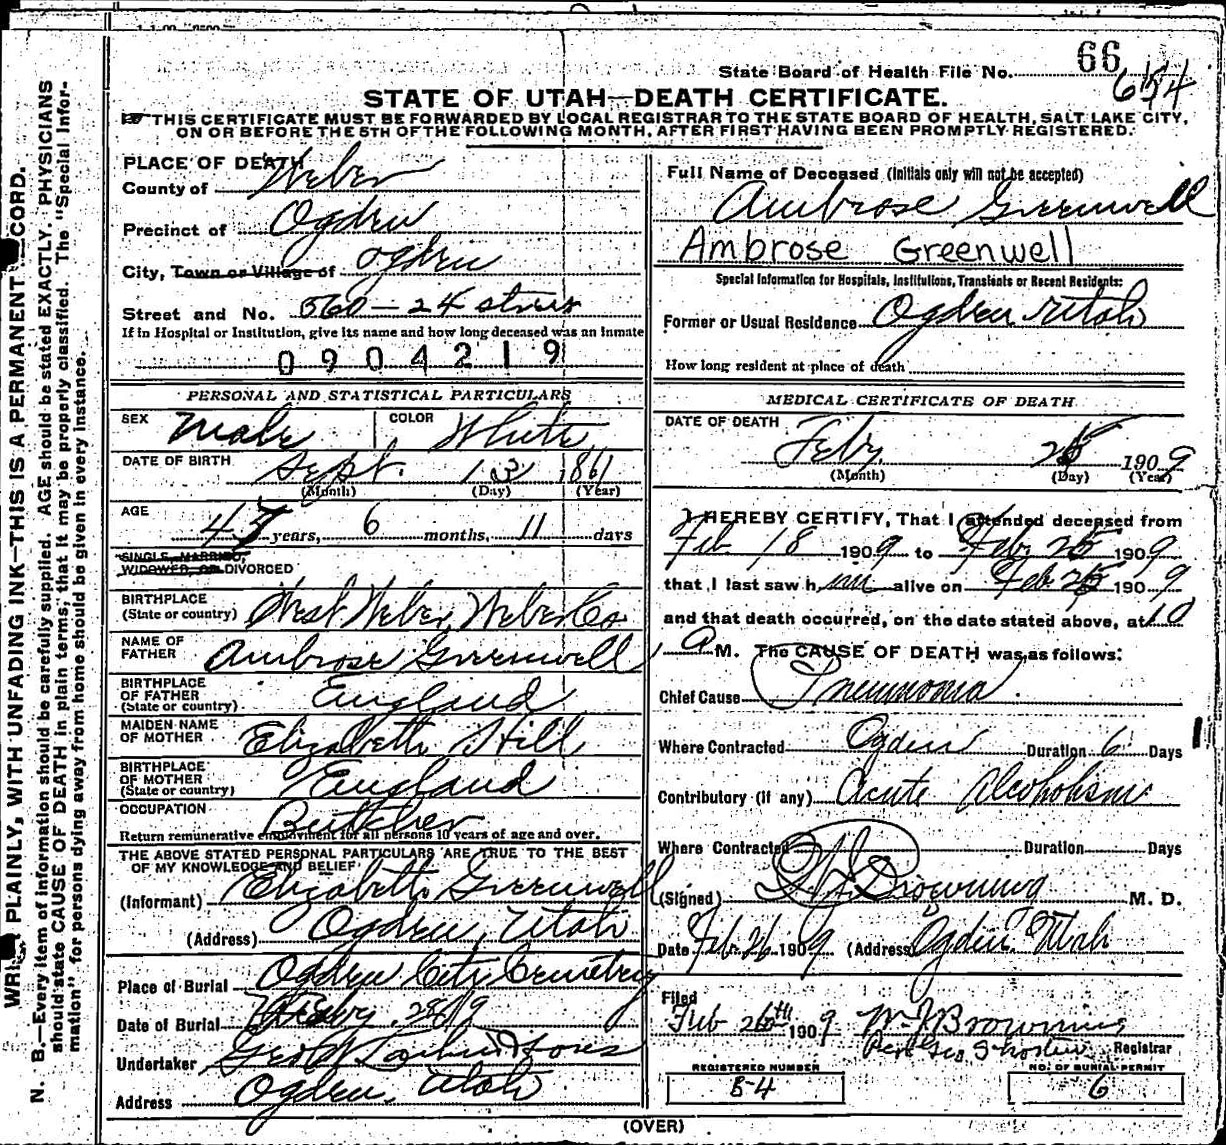 State Board of Health File No. 66
654
STATE OF UTAH—DEATH CERTIFICATE.
THIS CERTIFICATE MUST BE FORWARDED BY LOCAL REGISTRAR TO THE STATE BOARD OF HEALTH, SALT LAKE CITY,
ON OR BEFORE THE 5TH OF THE FOLLOWING MONTH, AFTER FIRST HAVING BEEN PROMPTLY REGISTERED.
WRITE PLAINLY, WITH UNFADING INK—THIS IS A PERMANENT RECORD.
N. B.—Every item of information should be carefully supplied. AGE should be stated EXACTLY. PHYSICIANS
should state CAUSE OF DEATH in plain terms, that it may be properly classified. The "Special Infor-
mation" for persons dying away from home should be given in every instance.
PLACE OF DEATH
County of Weber
Precinct of Ogden
City, Town or Village of Ogden
Street and No. 560—24 street
If in Hospital or Institution, give its name and how long deceased was an inmate
0904219
PERSONAL AND STATISTICAL PARTICULARS
SEX Male COLOR White
DATE OF BIRTH Sept. 13 1861
(Month) (Day) (Year)
AGE 47 years, 6 months, 11 days
SINGLE, MARRIED,
WIDOWED, OR DIVORCED
BIRTHPLACE
(State or country) West Weber, Weber Co
NAME OF
FATHER Ambrose Greenwell
BIRTHPLACE
OF FATHER
(State or country) England
MAIDEN NAME
OF MOTHER Elizabeth Hill
BIRTHPLACE
OF MOTHER
(State or country) England
OCCUPATION Butcher
Return remunerative employment for all persons 10 years of age and over.
THE ABOVE STATED PERSONAL PARTICULARS ARE TRUE TO THE BEST
OF MY KNOWLEDGE AND BELIEF
(Informant) Elizabeth Greenwell
(Address) Ogden, Utah
Place of Burial Ogden City Cemetery
Date of Burial Feby. 28/9
Undertaker
Address Ogden, Utah
Full Name of Deceased (Initials only will not be accepted)
Ambrose Greenwell
Ambrose Greenwell
Special Information for Hospitals, Institutions, Transients or Recent Residents:
Former or Usual Residence Ogden Utah
How long resident at place of death
MEDICAL CERTIFICATE OF DEATH
DATE OF DEATH
Feby 25 1909
(Month) (Day) (Year)
I HEREBY CERTIFY, That I attended deceased from
Feb 18 1909 to Feb 25 1909
that I last saw him alive on Feb 25 1909
and that death occurred, on the date stated above, at 10
A M. The CAUSE OF DEATH was as follows:
Chief Cause Pneumonia
Where Contracted Ogden Duration 6 Days
Contributory (if any) Acute Alcoholism
Where Contracted Duration Days
(Signed) Browning M. D.
Date Feb 26 1909 (Address) Ogden Utah
Filed
Feb 26th 1909 Browning
Registrar
REGISTERED NUMBER
B-4
NO. OF BURIAL PERMIT
6
(OVER)